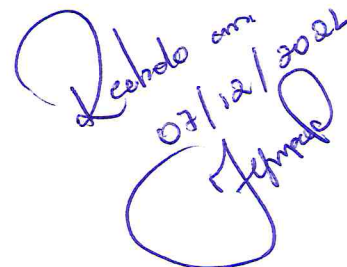 Recebido em
07/12/2022